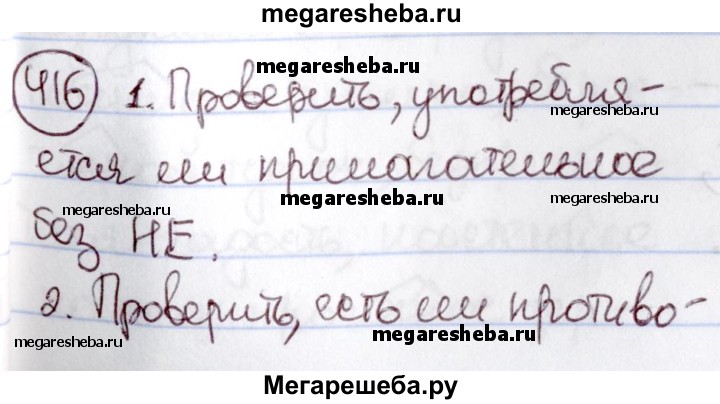 megaresheba.ru
416 1. Проверить, употребля-
megaresheba.ru
ется ли прилагательное
megaresheba.ru megaresheba.ru
без НЕ.
2. Проверить, есть ли противо-
megaresheba.ru megaresheba.ru
Мегарешеба.ру